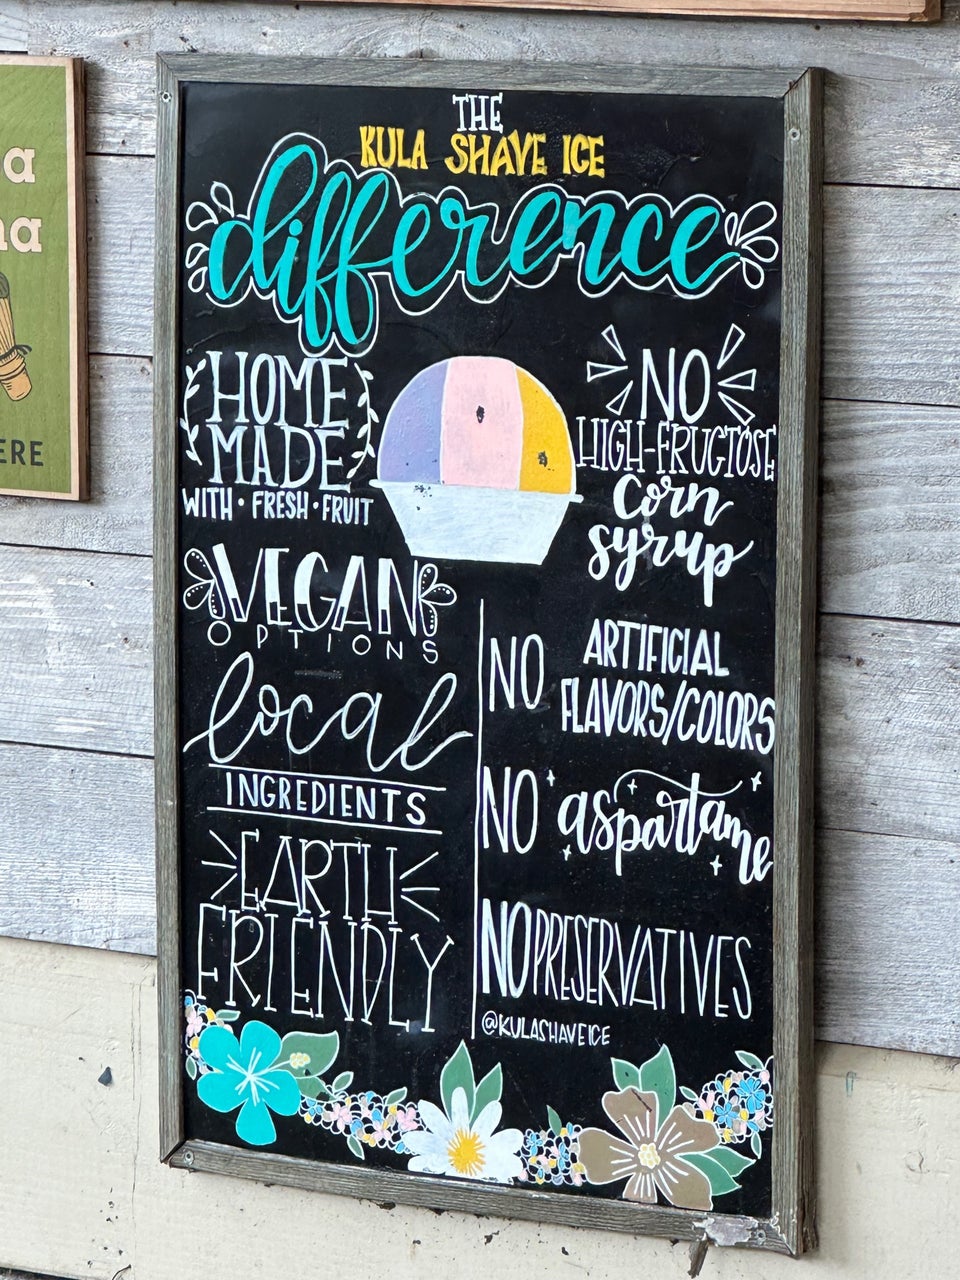 THE
KULA SHAVE ICE
difference
HOME
MADE
WITH • FRESH • FRUIT
VEGAN
OPTIONS
local
INGREDIENTS
EARTH
FRIENDLY
NO
HIGH-FRUCTOSE
corn
syrup
NO ARTIFICIAL
FLAVORS/COLORS
NO aspartame
NO PRESERVATIVES
@KULASHAVEICE
a
na
ERE